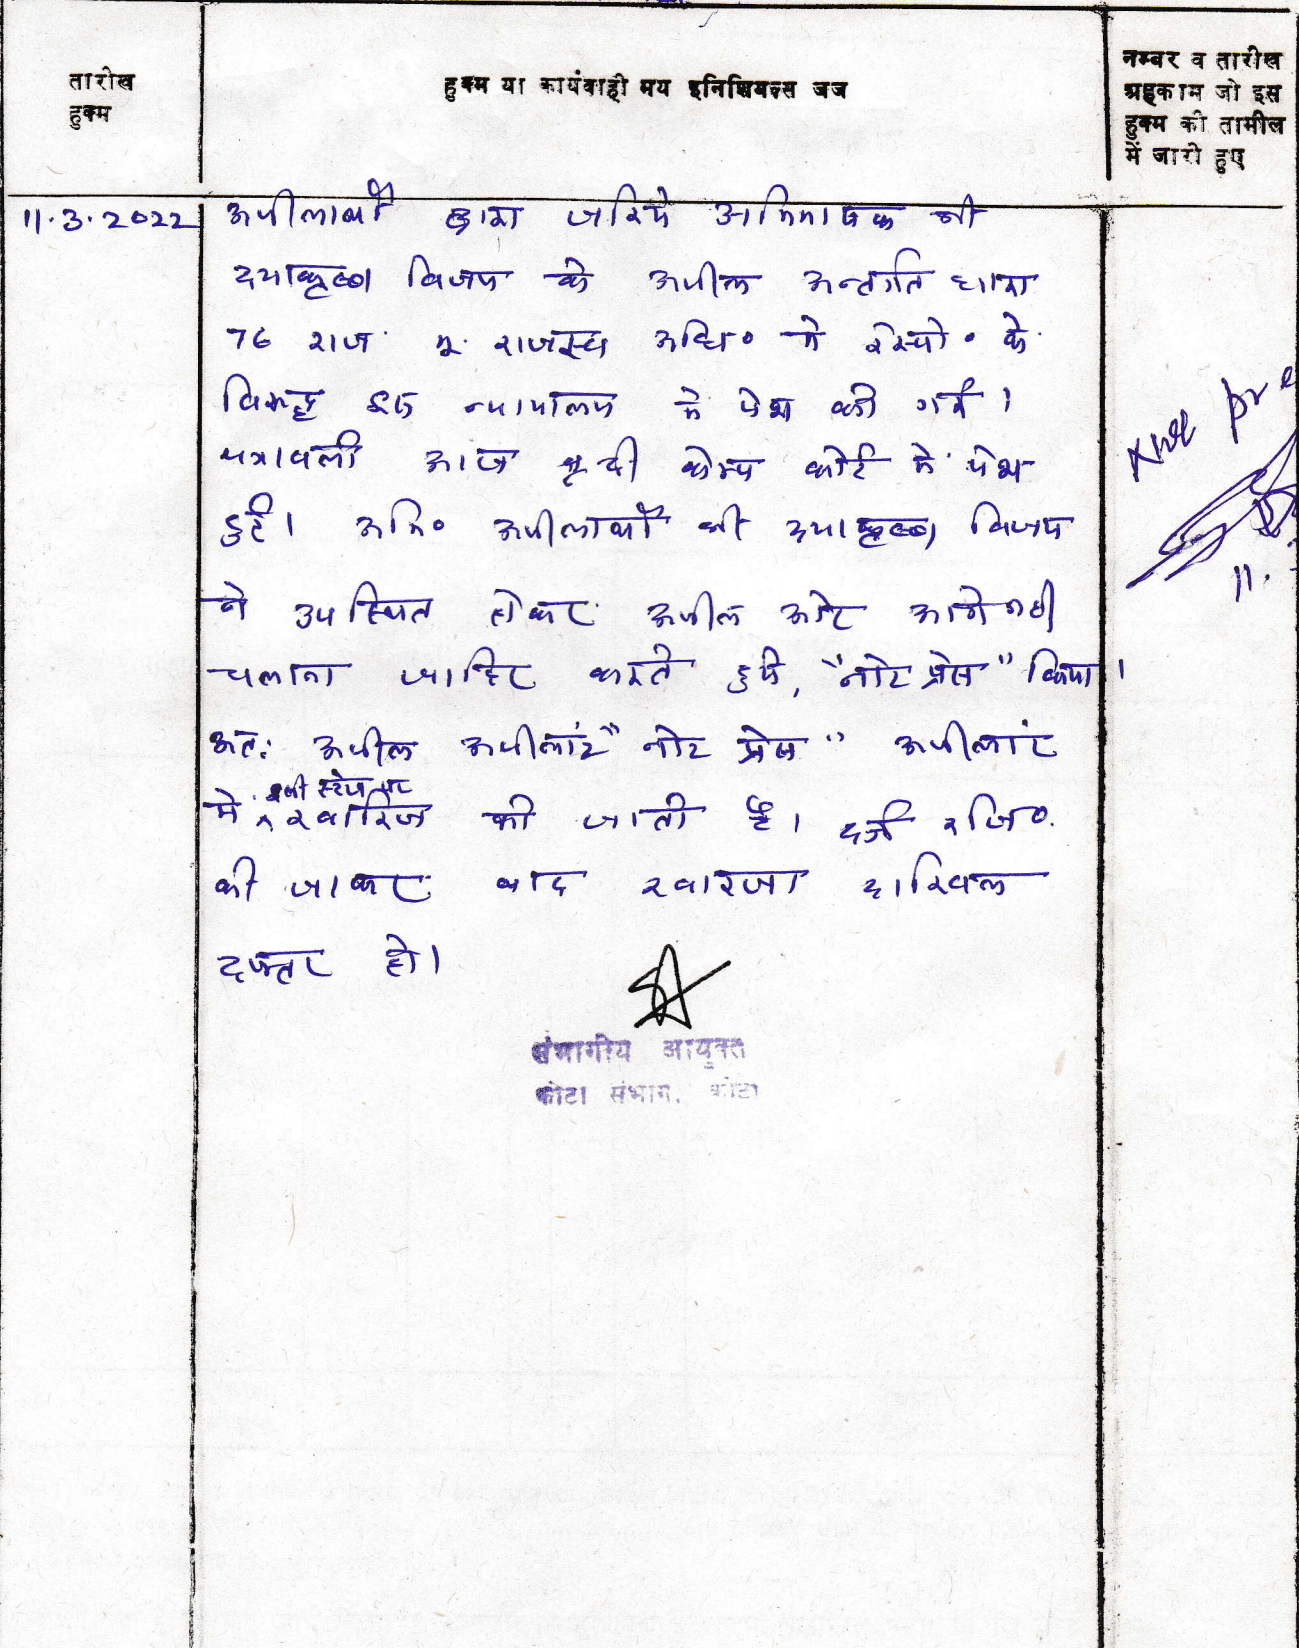 तारीख
हुक्म
हुक्म या कार्यवाही मय इनिशियल्स जज
नम्बर व तारीख
अहकाम जो इस
हुक्म की तामील
में जारी हुए
11.3.2022
अपीलार्थी द्वारा जरिये अभिभाषक श्री
दयाकृष्ण विजय के अपील अन्तर्गत धारा
76 राज. भू. राजस्व अधि० मे रेस्पो० के
विरूद्ध इस न्यायालय में पेश की गई।
पत्रावली आज बून्दी केम्प कोर्ट में पेश
हुई। अभि० अपीलार्थी श्री दयाकृष्ण विजय
ने उपस्थित होकर अपील को आगे नही
चलाना जाहिर करते हुये, "नोट प्रेस" किया।
अतः अपील अपीलांट "नोट प्रेस" अपीलांट
इसी स्टेज पर
मे खारिज की जाती है। दर्ज रजि०
की जाकर बाद खारजा दाखिल
दफ्तर हो।
संभागीय आयुक्त
कोटा संभाग, कोटा
11.